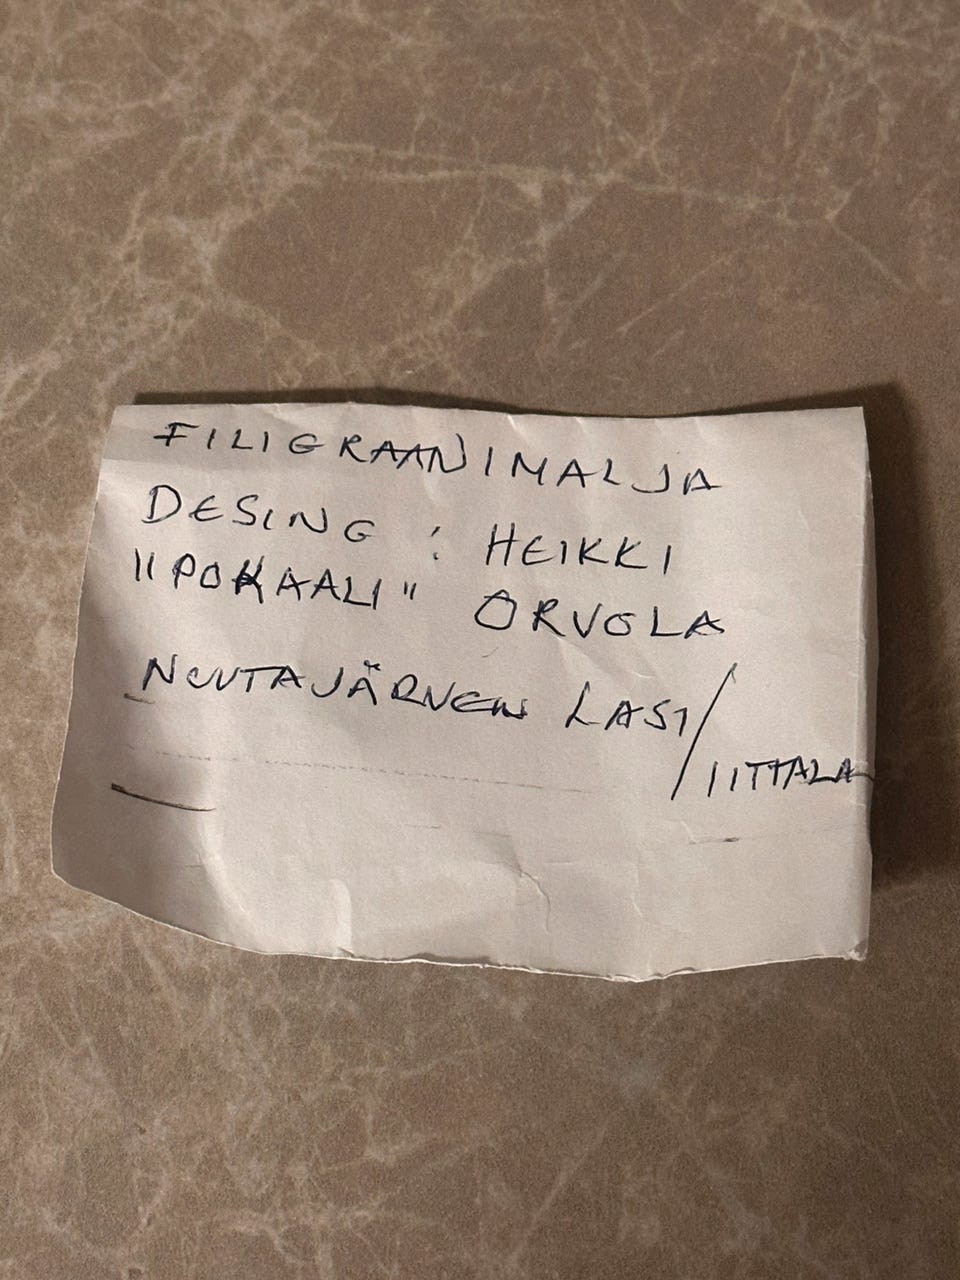 FILIGRAANIMALJA
DESING : HEIKKI
"POKAALI" ORVOLA
NUUTAJÄRVEN LASI/
IITTALA